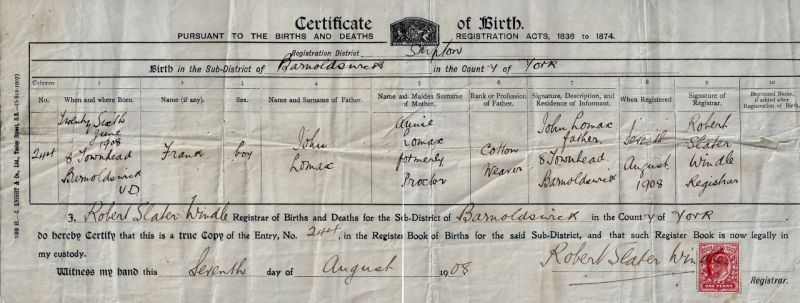 Certificate of Birth.
PURSUANT TO THE BIRTHS AND DEATHS REGISTRATION ACTS, 1836 to 1874.
Registration District Skipton
Birth in the Sub-District of Barnoldswick in the County of York
Columns 1 2 3 4 5 6 7 8 9 10
No. When and where Born. Name (if any). Sex. Name and Surname of Father. Name and Maiden Surname of Mother. Rank or Profession of Father. Signature, Description, and Residence of Informant. When Registered. Signature of Registrar. Baptismal Name, if added after Registration of Birth.
244
Twenty Sixth
June
1908
8 Townhead
Barnoldswick
U D
Frank
boy
John
Lomax
Annie
Lomax
formerly
Proctor
Cotton
Weaver
John Lomax
Father
8 Townhead
Barnoldswick
Seventh
August
1908
Robert
Slater
Windle
Registrar
I, Robert Slater Windle Registrar of Births and Deaths for the Sub-District of Barnoldswick in the County of York
do hereby Certify that this is a true Copy of the Entry, No. 244, in the Register Book of Births for the said Sub-District, and that such Register Book is now legally in
my custody.
Witness my hand this Seventh day of August 1908 Robert Slater Windle
Registrar.
ONE PENNY